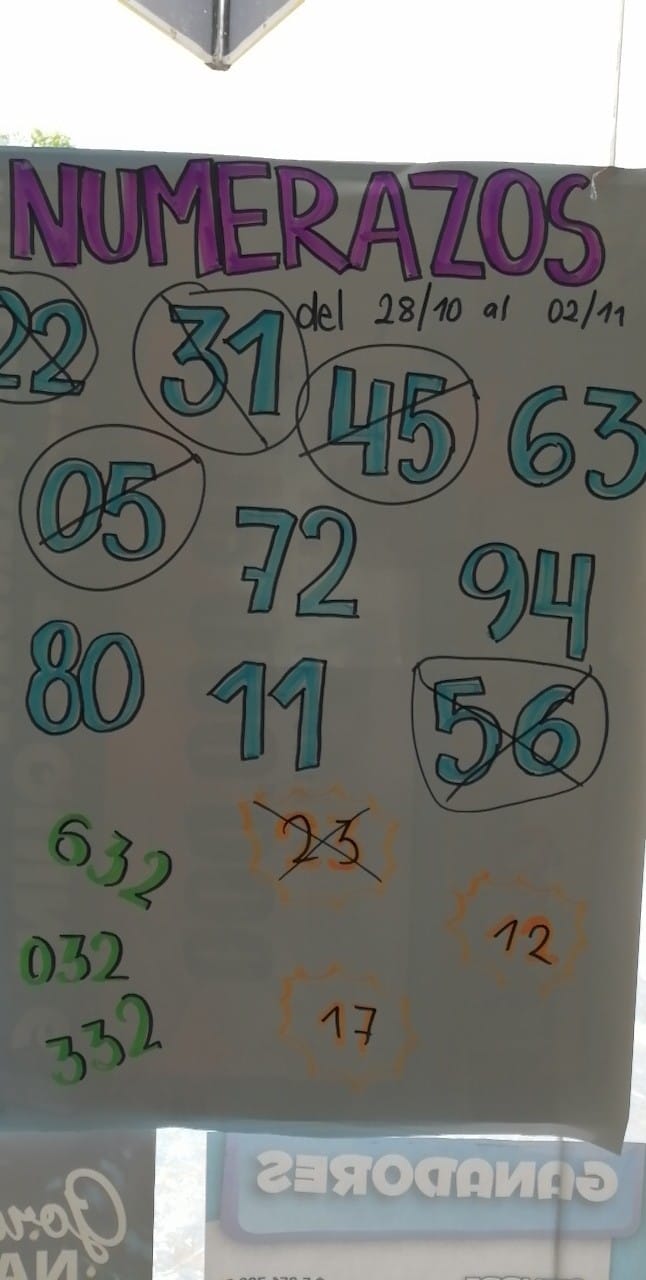 NUMERAZOS
del 28/10 al 02/11
22 31 45 63
05 72 94
80 11 56
632 23
12
032
17
332
GANADORES